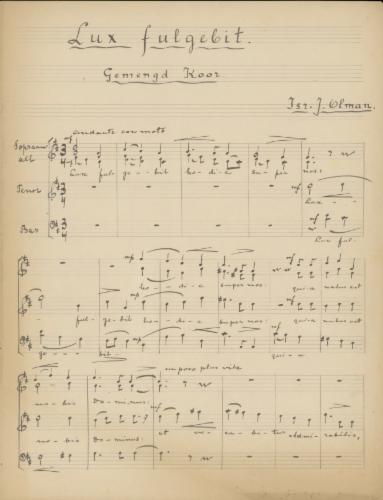 Lux fulgebit.
Gemengd Koor
Isr. J. Olman.
andante con moto
Sopraan
alt
Lux ful- ge- bit ho- di- e su- per nos:
Tenor
Lux
Bas
Lux ful-
ho- di- e super nos: qui-a natus est
ful- ge- bit ho- di- e super nos: qui-a natus est
ge- bit- qui-
un poco piu vite
no- bis Do- minus:
no- bis Do- minus: et vo- ca- bi- tur admi- rabilis,